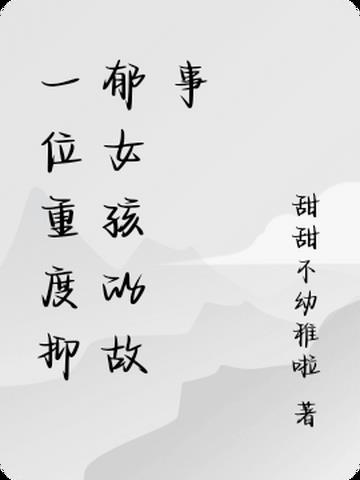 一位重度抑
郁女孩的故
事
甜甜不幼雅啦 著